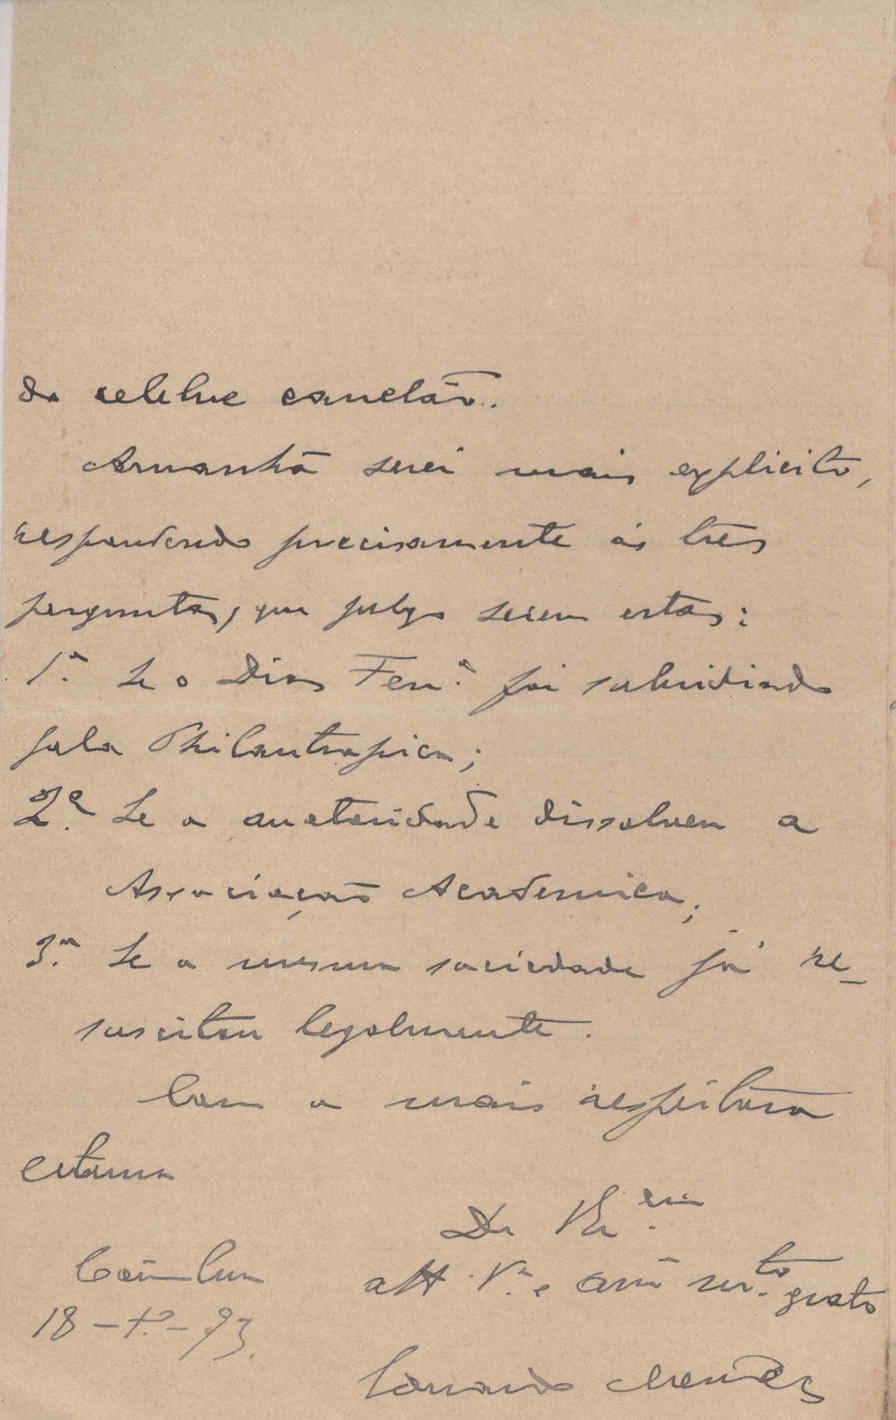 do celebre cancelão.
Amanhã serei mais explicito,
respondendo precisamente ás tres
perguntas, que julgo serem estas:
1.ª Se o Dias Ferr.ª foi subsidiado
pela Philantropica;
2.ª Se a auctoridade dissolveu a
Associação Academica;
3.ª Se a mesma sociedade já re-
suscitou legalmente.
Com a mais respeitosa
estima
De V.
att. V.or e am.
grato
Coimbra
18 - - 93.
Mendes